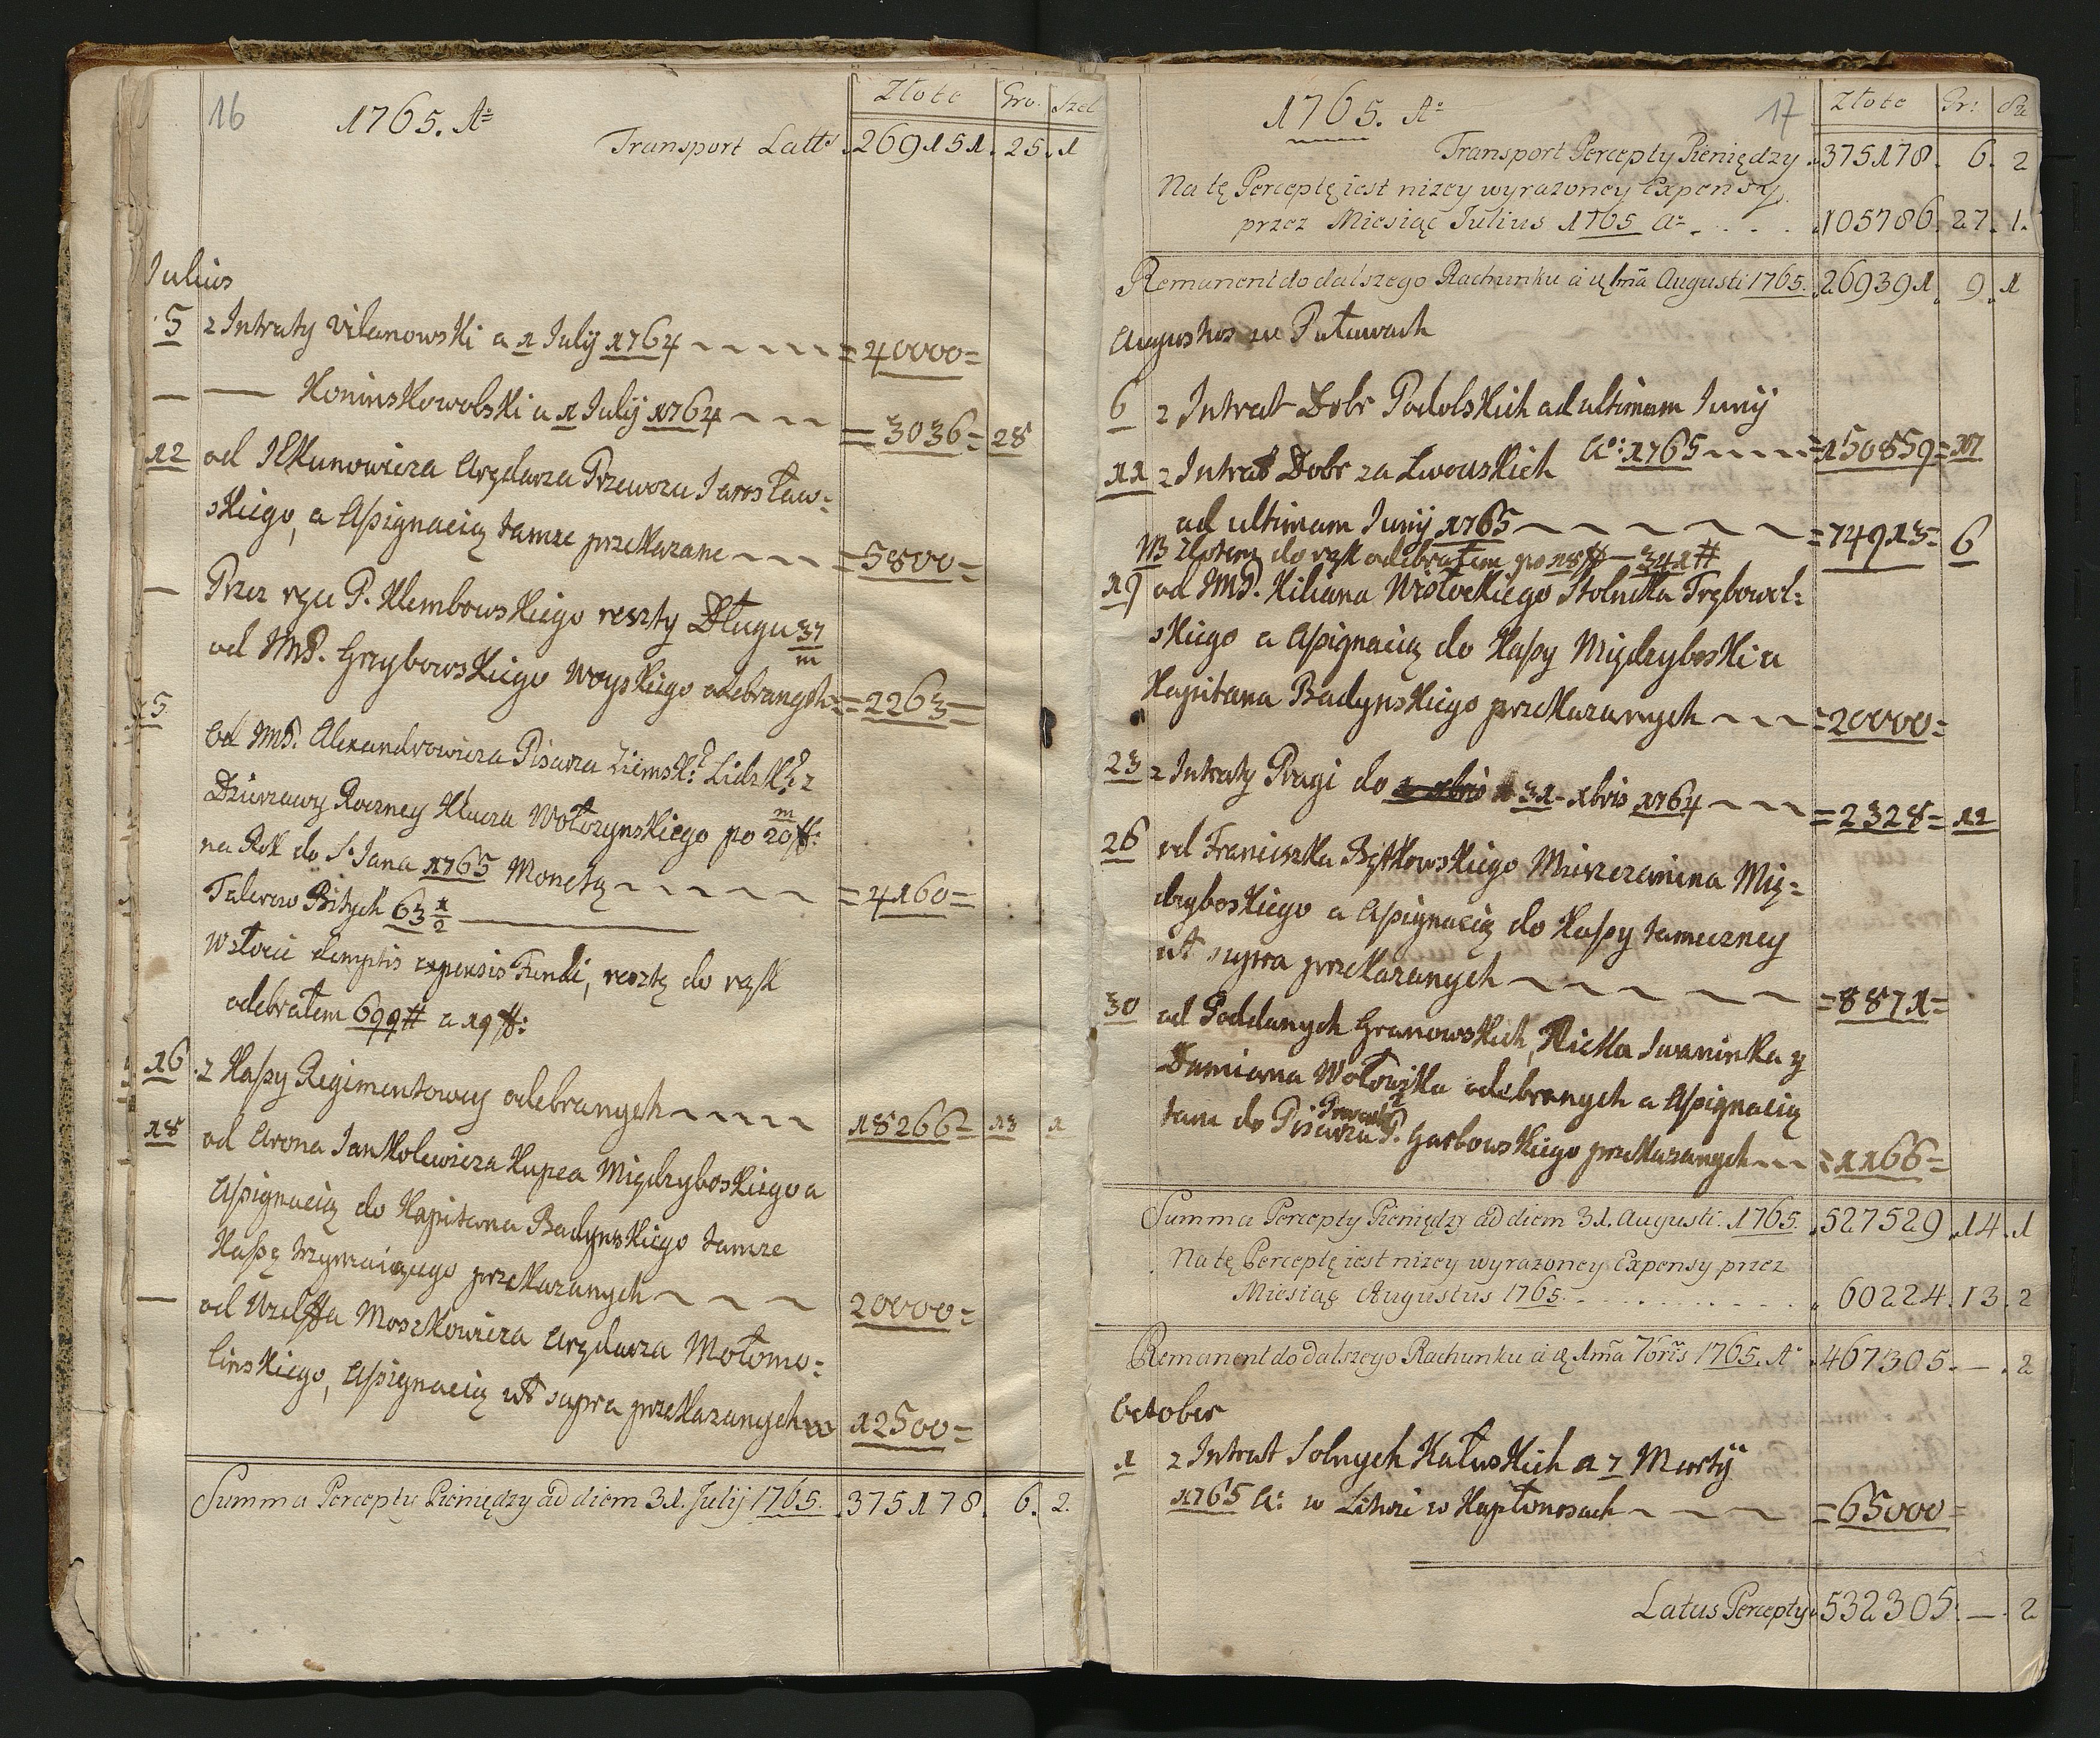 16
1765. Aº
Złote Gro. Szel
Transport Latt. 269151. 25. 1
Julius
5 z Intraty Vilanowski a 1 July 1764 = 40000 =
— Koninskowolski a 1 July 1764 = 3036 = 28
12 od Ilkunowicza Arędarza Przewozu Jarosław:
skiego, a Assignacią tamze przekazane = 5800 =
— Przez ręce P. Klembowskiego reszty Długu 37/m
od JmP. Grzybowskiego Woyskiego odebranych = 2263 =
15 Od JmP. Alexandrowicza Pisarza Ziemsk: Lidzk: z
Dzierzawy Roczney Klucza Wołozynskiego po 20/m ff:
na Rok do S. Jana 1765 Monetą = 4160 =
Talerow Bitych 63 1/2
W złocie demptis expensis Fundi, resztę do rąk
odebrałem 699 # a 19 ff:
16 z Kassy Regimentowey odebranych 18266 = 13 1
18 od Arona Jankolewicza Kupca Międzyboskiego a
Assignacią do Kapitana Badynskiego tamze
Kassę trzymaiącego przekazanych 20000 =
— od Uszka Moszkowicza Arędarza Mołomo:
linskiego, Assignacią ut supra przekazanych 12500 =
Summa Percepty Pieniędzy ad diem 31. Julij 1765. 375178. 6. 2.
17
1765. Aº
Złote Gr: Sz
Transport Percepty Pieniędzy. 375178. 6. 2
Na tę Perceptę iest nizey wyrazoney Expensy,
przez Miesiąc Julius 1765 Aº 105786. 27. 1.
Remanent do dalszego Rachunku à 1mã Augusti 1765. 269391. 9. 1
Augustus w Puławach
6 z Intrat Dobr Podolskich ad ultimam Junij
Aº: 1765 = 150859 = 17
11 z Intrat Dobr za Lwowskich
ad ultimam Junij 1765 = 74913 = 6
NB Złotem do rąk odebrałem po 18 ff — 341 #
19 od JmP. Kiliana Wisłockiego Stolnika Trębowol:
skiego a Assignacią do Kassy Międzyboski a
Kapitana Badynskiego przekazanych = 20000 =
23 z Intraty Pragi do 31 Xbris 1764 = 2328 = 12
26 od Franciszka Bętkowskiego Mieszczanina Mię:
dzyboskiego a Assignacią do Kassy tameczney
ut supra przekazanych = 8871 =
30 od Poddanych Granowskich, Ricka Iwaninka y
Demiana Wołowika odebranych a Assignacią
tam do Pisarza P. Garbowskiego przekazanych = 1166 =
Summa Percepty Pieniędzy ad diem 31. Augusti. 1765. 527529. 14. 1
Na tę Perceptę iest nizey wyrazoney Expensy przez
Miesiąc Augustus 1765. 60224. 13. 2
Remanent do dalszego Rachunku à 1mã 7bris 1765. Aº 467305. — . 2
October
1 z Intrat Solnych Kałuskich a 7 Martÿ
1765 A: w Litwie w Kapłonosach = 65000 =
Latus Percepty. 532305. — . 2